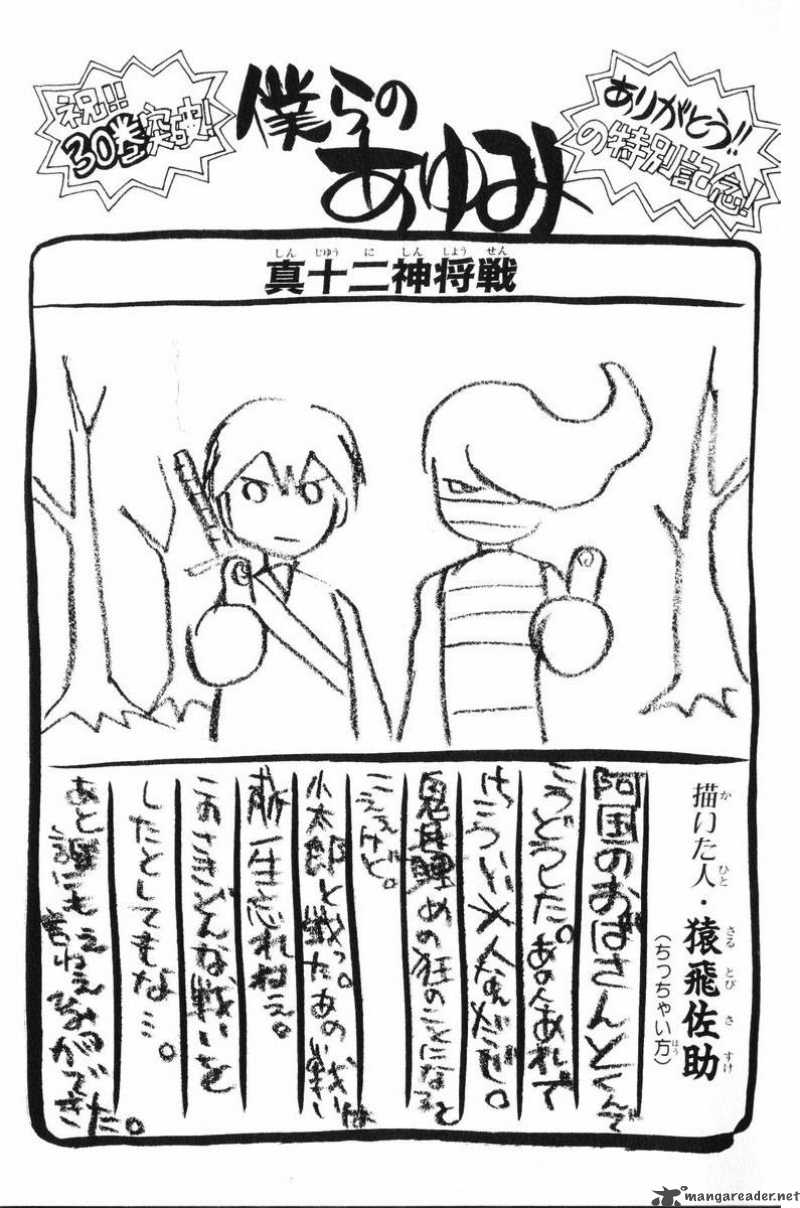 祝!!
30巻突破!
僕らの
あゆみ
ありがとう!!
の特別記念!
真十二神将戦
しんじゅうにしんしょうせん
描いた人・猿飛佐助
かひとさるとびさすけ
(ちっちゃい方)
ほう
阿国のおばさんとくんで
こうどうした。あの人あれで
けっこういい人なんだぜ。
鬼目の狂のことになると
こえぇけど。
小太郎と戦った。あの戦いは
一生忘れねえ。
このさきどんな戦いを
したとしてもな…。
あと誰にもえねえができた。
mangareader.net